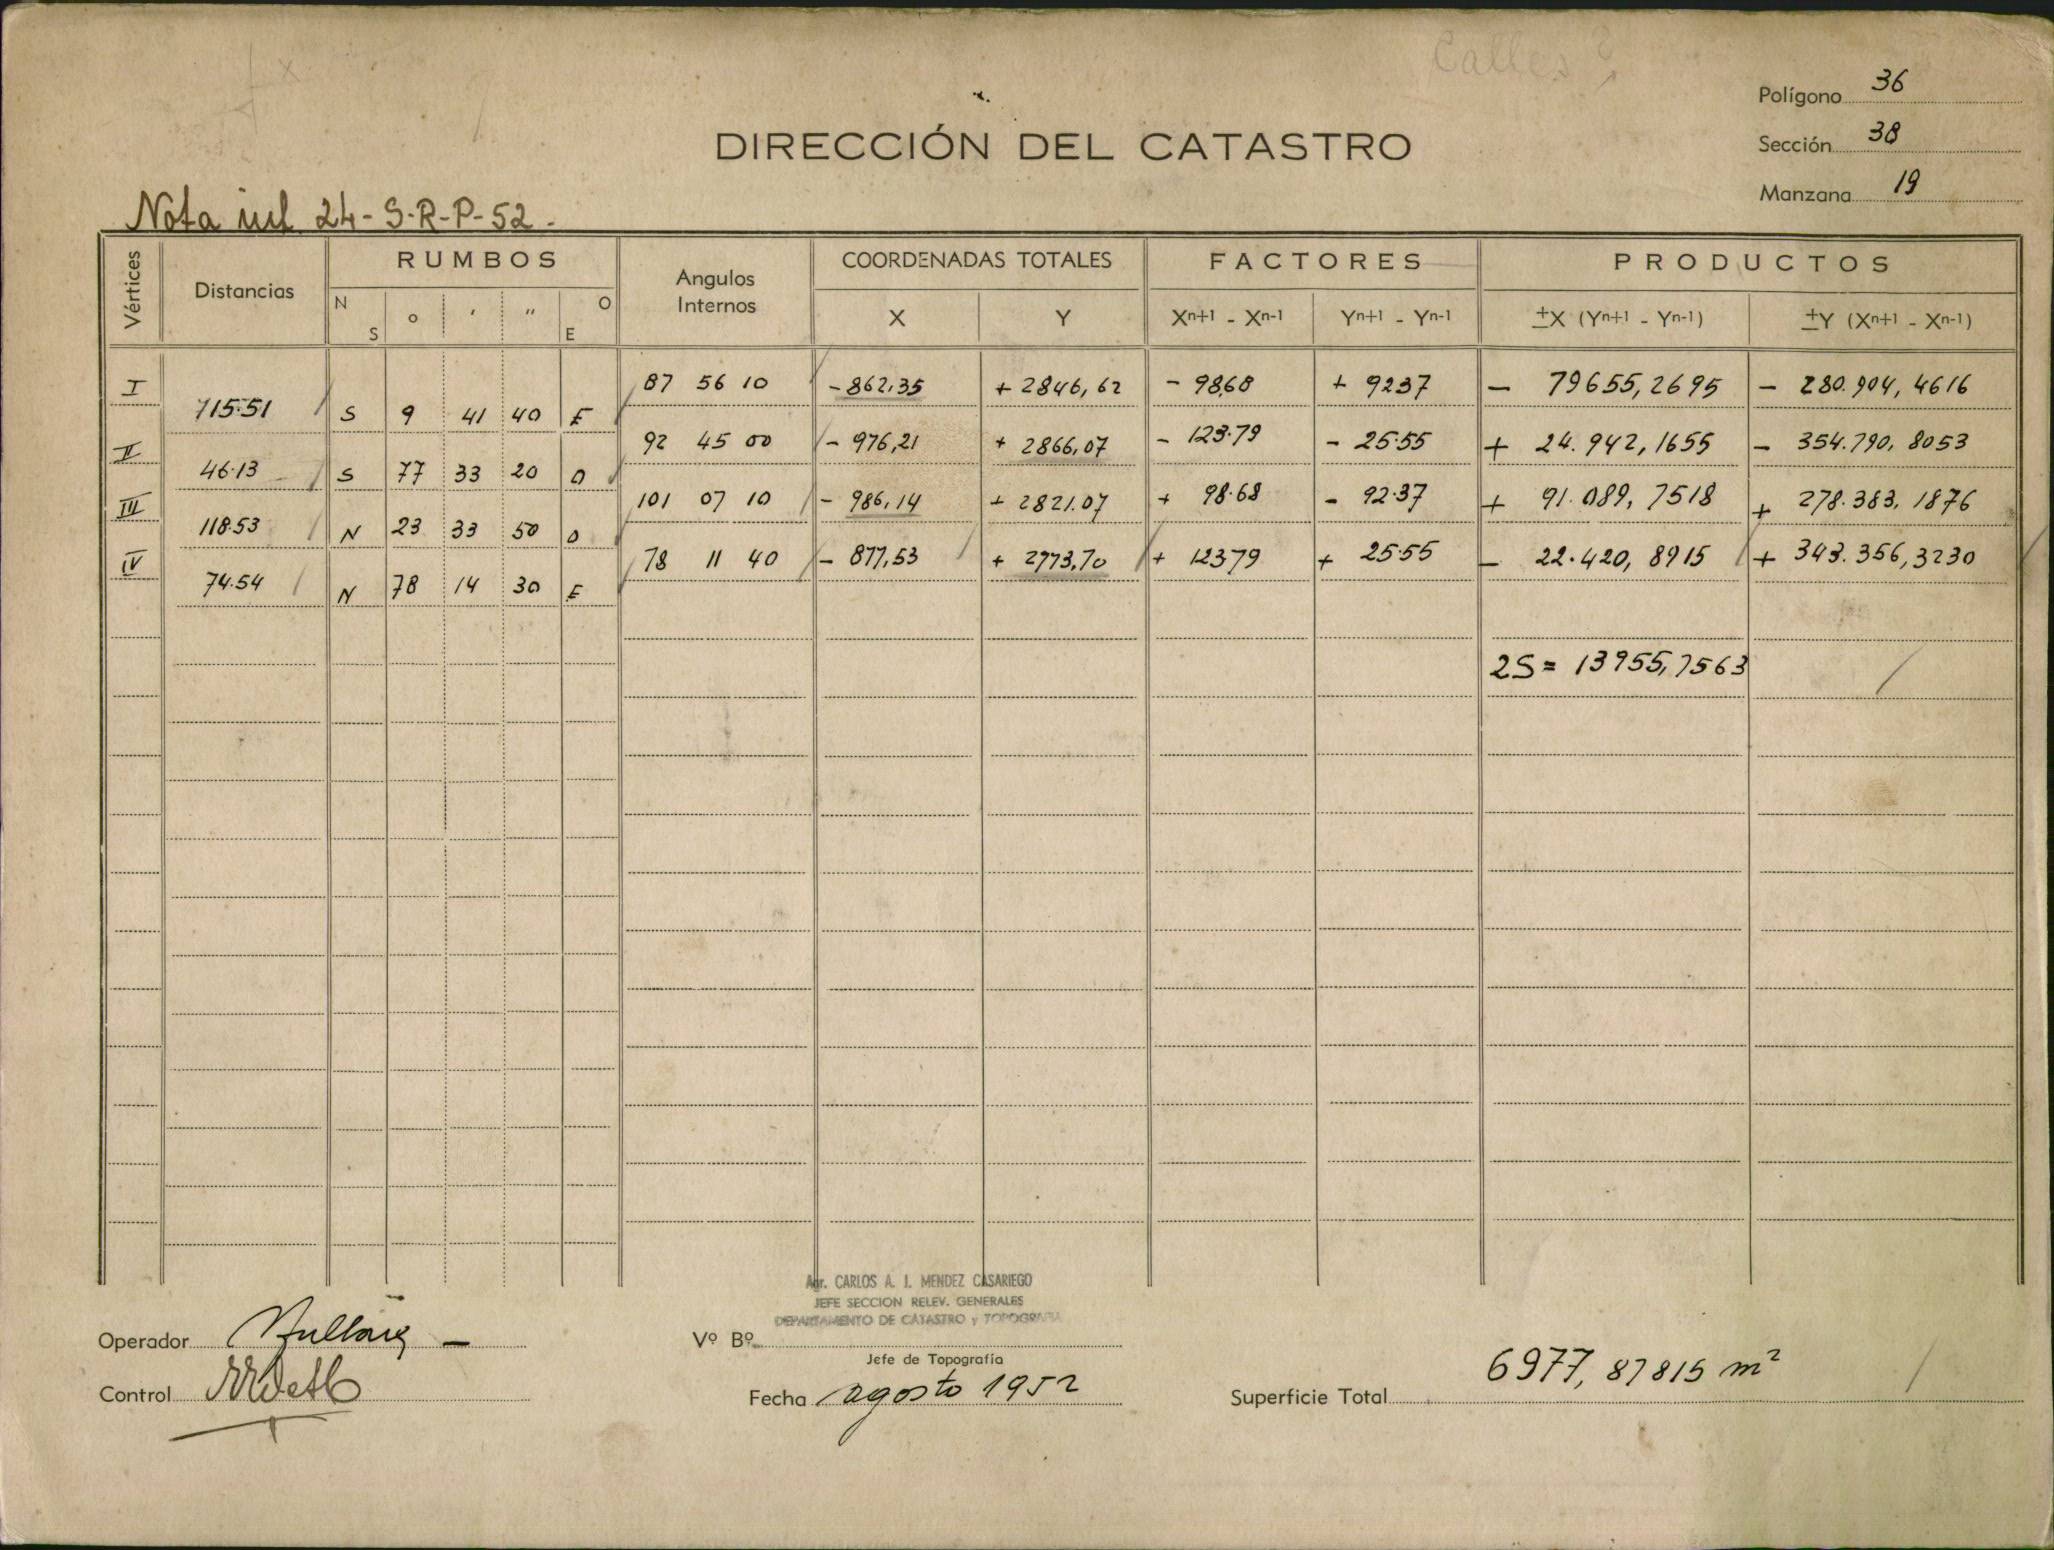 Calles ?
Polígono 36
DIRECCIÓN DEL CATASTRO
Sección 38
Manzana 19
Nota inf. 24-S-R-P-52-
Vértices Distancias RUMBOS Angulos Internos COORDENADAS TOTALES FACTORES PRODUCTOS
N S o ' " O E X Y Xn+1 - Xn-1 Yn+1 - Yn-1 ±X (Yn+1 - Yn-1) ±Y (Xn+1 - Xn-1)
I 87 56 10 -862,35 +2846,62 -98,68 +92 37 - 79655,2695 - 280.904,4616
115.51 S 9 41 40 E
II 92 45 00 -976,21 +2866,07 -123.79 -25.55 + 24.942,1655 - 354.790,8053
46.13 S 77 33 20 O
III 101 07 10 -986,14 +2821.07 +98.68 -92.37 + 91.089,7518 + 278.383,1876
118.53 N 23 33 50 O
IV 78 11 40 -877,53 +2773,70 +123 79 +25.55 - 22.420,8915 + 343.356,3230
74.54 N 78 14 30 E
2S= 13955,7563
Agr. CARLOS A. I. MENDEZ CASARIEGO
JEFE SECCION RELEV. GENERALES
DEPARTAMENTO DE CATASTRO y TOPOGRAFIA
Operador
Vº Bº
Jefe de Topografía
Control
Fecha agosto 1952
Superficie Total 6977,87815 m²